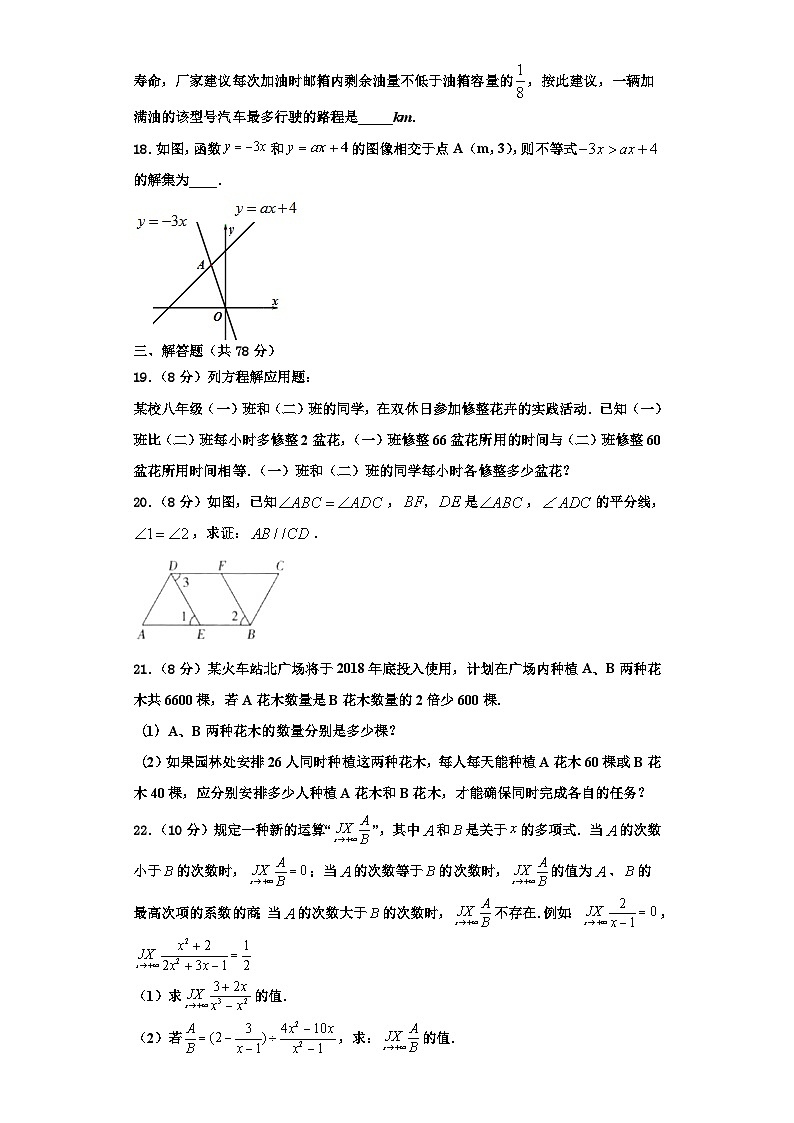 寿命，厂家建议每次加油时邮箱内剩余油量不低于油箱容量的1/8，按此建议，一辆加
满油的该型号汽车最多行驶的路程是_____km.
18．如图，函数y=−3x和y=ax+4的图像相交于点A（m，3），则不等式−3x>ax+4
的解集为____．
y=−3x
y=ax+4
y
A
x
O
三、解答题（共78分）
19．（8分）列方程解应用题：
某校八年级（一）班和（二）班的同学，在双休日参加修整花卉的实践活动．已知（一）
班比（二）班每小时多修整2盆花，（一）班修整66盆花所用的时间与（二）班修整60
盆花所用时间相等．（一）班和（二）班的同学每小时各修整多少盆花？
20．（8分）如图，已知∠ABC=∠ADC，BF，DE是∠ABC，∠ADC的平分线，
∠1=∠2，求证：AB//CD．
D F C
3
1 2
A E B
21．（8分）某火车站北广场将于2018年底投入使用，计划在广场内种植A、B两种花
木共6600棵，若A花木数量是B花木数量的2倍少600棵.
（1）A、B两种花木的数量分别是多少棵？
（2）如果园林处安排26人同时种植这两种花木，每人每天能种植A花木60棵或B花
木40棵，应分别安排多少人种植A花木和B花木，才能确保同时完成各自的任务？
22．（10分）规定一种新的运算“JX x→+∞ A/B”，其中A和B是关于x的多项式．当A的次数
小于B的次数时，JX x→+∞ A/B=0；当A的次数等于B的次数时，JX x→+∞ A/B的值为A、B的
最高次项的系数的商 当A的次数大于B的次数时，JX x→+∞ A/B不存在．例如 JX x→+∞ 2/(x−1)=0，
JX x→+∞ (x²+2)/(2x²+3x−1)=1/2
（1）求JX x→+∞ (3+2x)/(x³−x²)的值．
（2）若A/B=(2−3/(x−1))÷(4x²−10x)/(x²−1)，求：JX x→+∞ A/B的值．